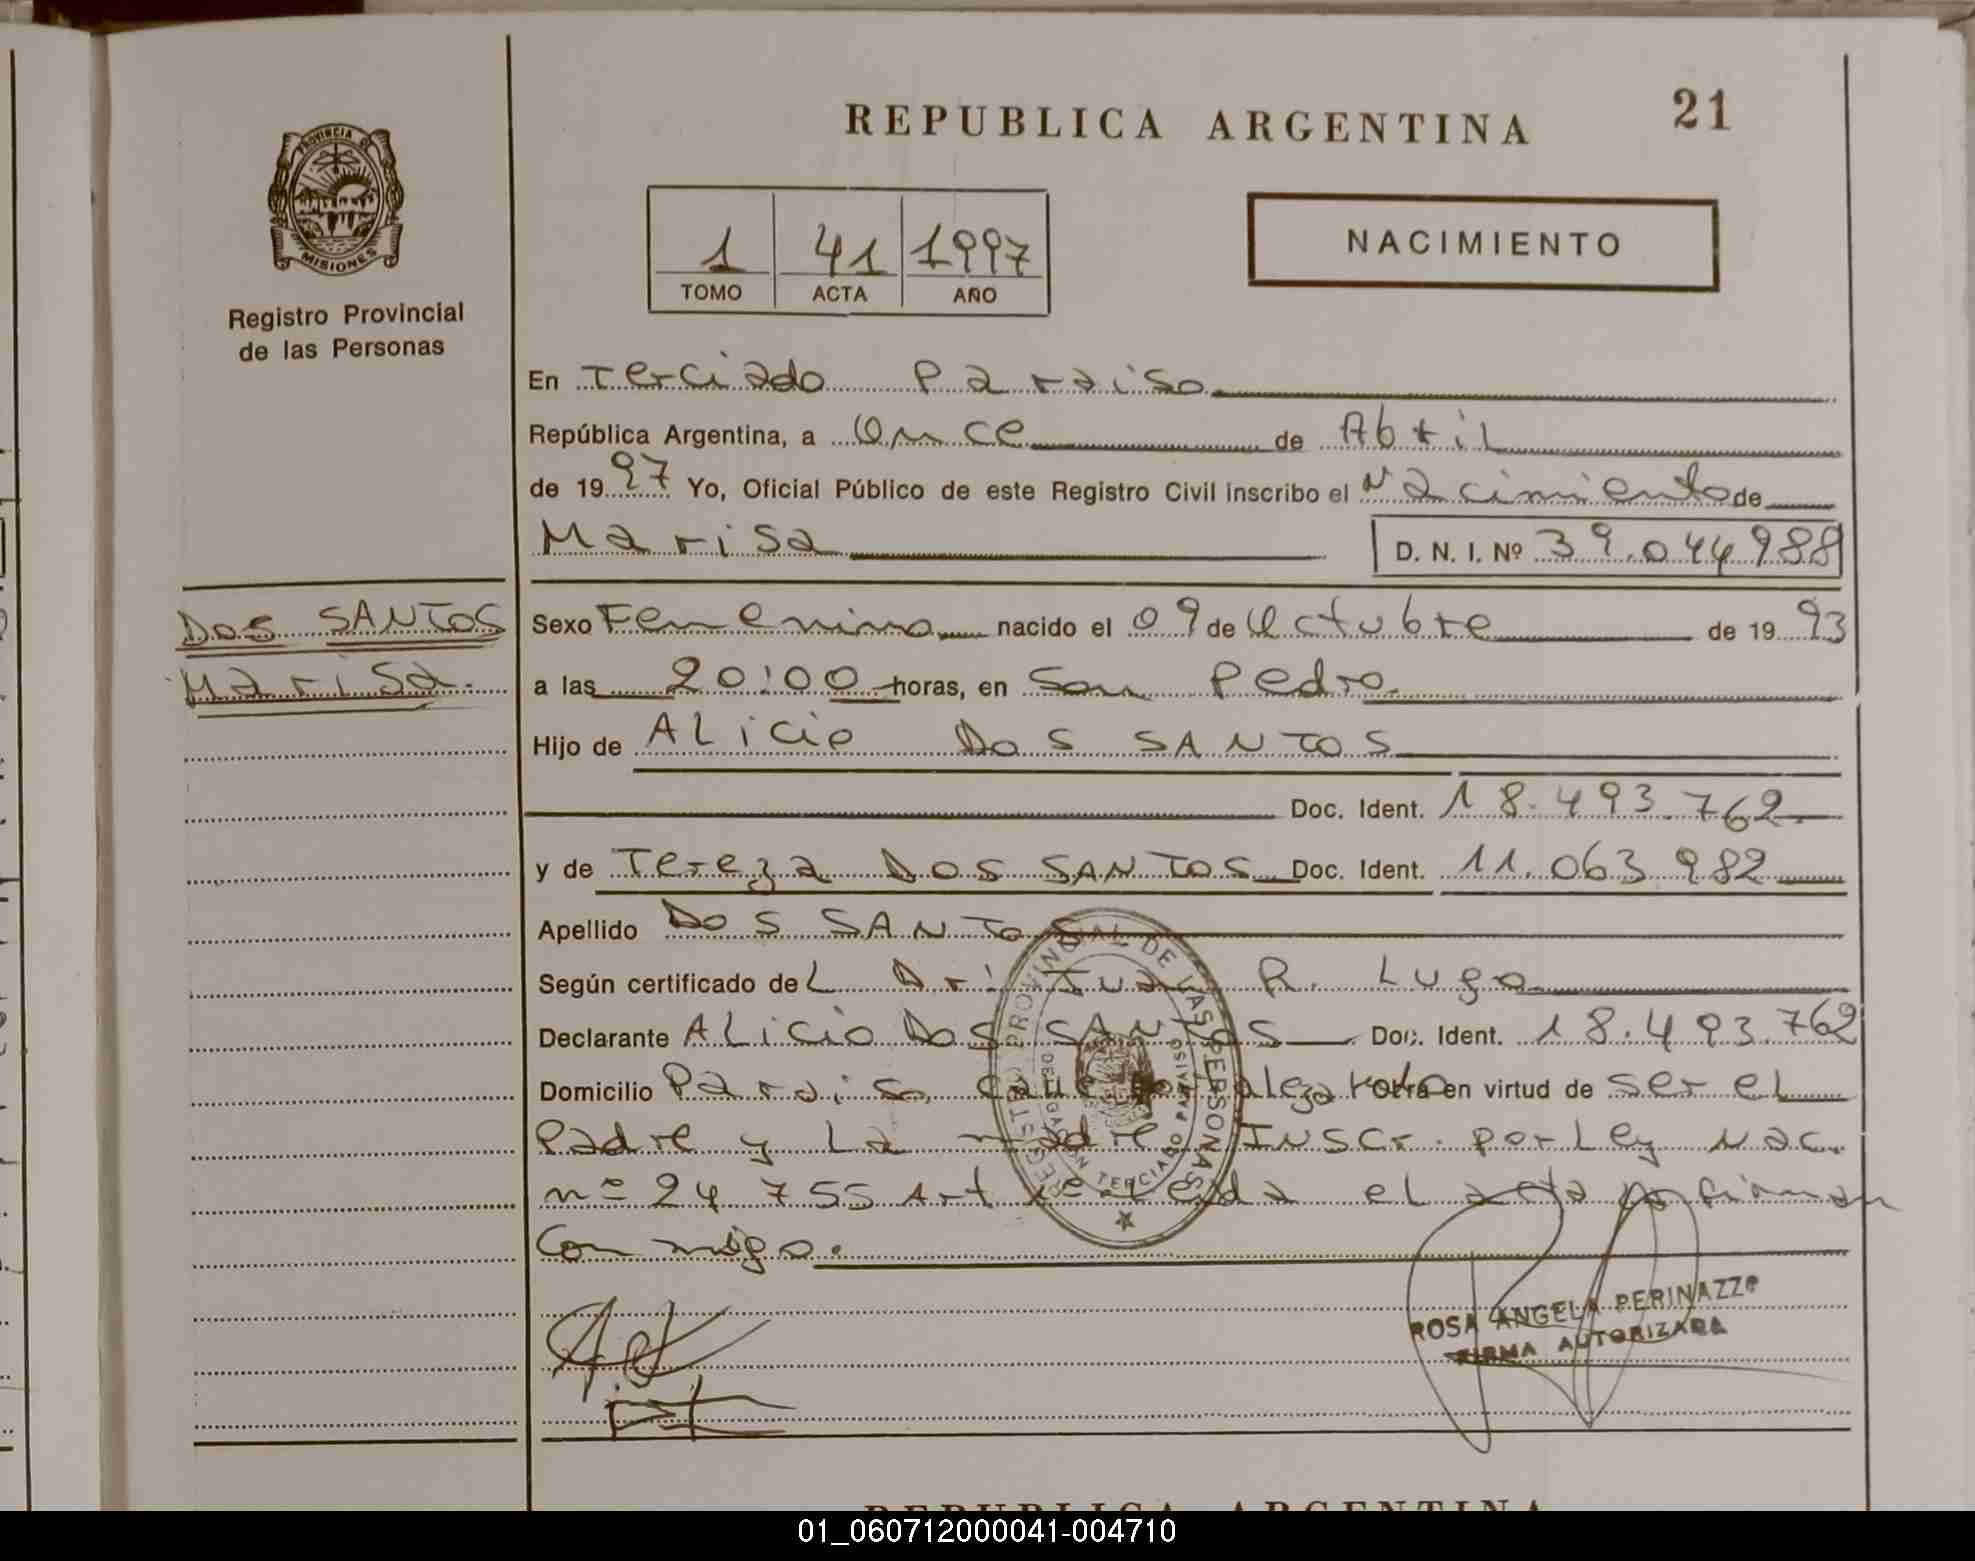 REPUBLICA ARGENTINA
21
PROVINCIA DE
MISIONES
Registro Provincial
de las Personas
1 41 1997
TOMO ACTA AÑO
NACIMIENTO
En Terciado Paraiso
República Argentina, a Once de Abril
de 1997 Yo, Oficial Público de este Registro Civil inscribo el Nacimiento de
Marisa D. N. I. Nº 39.044.988
DOS SANTOS
Marisa.
Sexo Femenino nacido el 09 de Octubre de 1993
a las 20:00 horas, en San Pedro
Hijo de ALicio DOS SANTOS
Doc. Ident. 18.493.762
y de Tereza DOS SANTOS Doc. Ident. 11.063.982
Apellido DOS SANTOS
Según certificado deL Dr: Juan R. Lugo
Declarante ALicio DOS SANTOS Doc. Ident. 18.493.762
Domicilio Paraiso, Otra en virtud de ser eL
Padre y La madre INSCr. por Ley Nac.
nº 24.755 Art 1º Leida el acta firman
Conmigo.
REGISTRO PROVINCIAL DE LAS PERSONAS
DELEGACION TERCIADO PARAISO
ROSA ANGELA PERINAZZO
FIRMA AUTORIZADA
REPUBLICA ARGENTINA
01_060712000041-004710